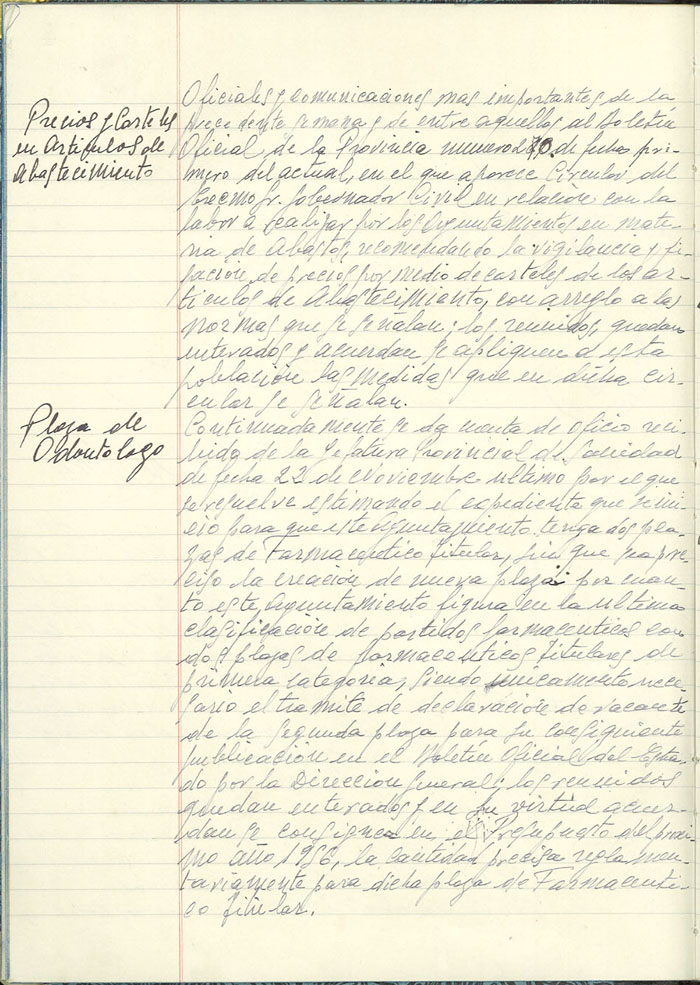 Precios y Carteles
en Artículos de
Abastecimiento
Oficiales y comunicaciones mas importantes de la
precedente semana y de entre aquellos al Boletín
Oficial de la Provincia numero 270 de fecha pri-
mero del actual, en el que aparece Circular del
Excmo Sr. Gobernador Civil en relación con la
labor a realizar por los Ayuntamientos en mate-
ria de Abastos, recomendando la vigilancia y fi-
jación de precios por medio de carteles de los ar-
ticulos de Abastecimiento, con arreglo a las
normas que se señalan; los reunidos, quedan
enterados y acuerdan se apliquen a esta
población las medidas que en dicha cir-
cular se señalan.
Plaza de
Odontologo
Continuadamente se da cuenta de oficio reci-
bido de la Jefatura Provincial de Sanidad
de fecha 22 de Noviembre ultimo por el que
se resuelve estimando el expediente que se ini-
ció para que este Ayuntamiento tenga dos pla-
zas de Farmaceutico titular, sin que sea pre-
ciso la creación de nueva plaza por cuan-
to este Ayuntamiento figura en la ultima
clasificación de partidos farmaceuticos con
dos plazas de farmaceuticos titulares de
primera categoria, siendo unicamente nece-
sario el tramite de declaración de vacante
de la segunda plaza para su consiguiente
publicación en el Boletín Oficial del Esta-
do por la Direccion General; los reunidos
quedan enterados y en su virtud acuer-
dan se consigne en el Presupuesto del proxi-
mo año 1956, la cantidad precisa reglamen-
tariamente para dicha plaza de Farmaceuti-
co titular.